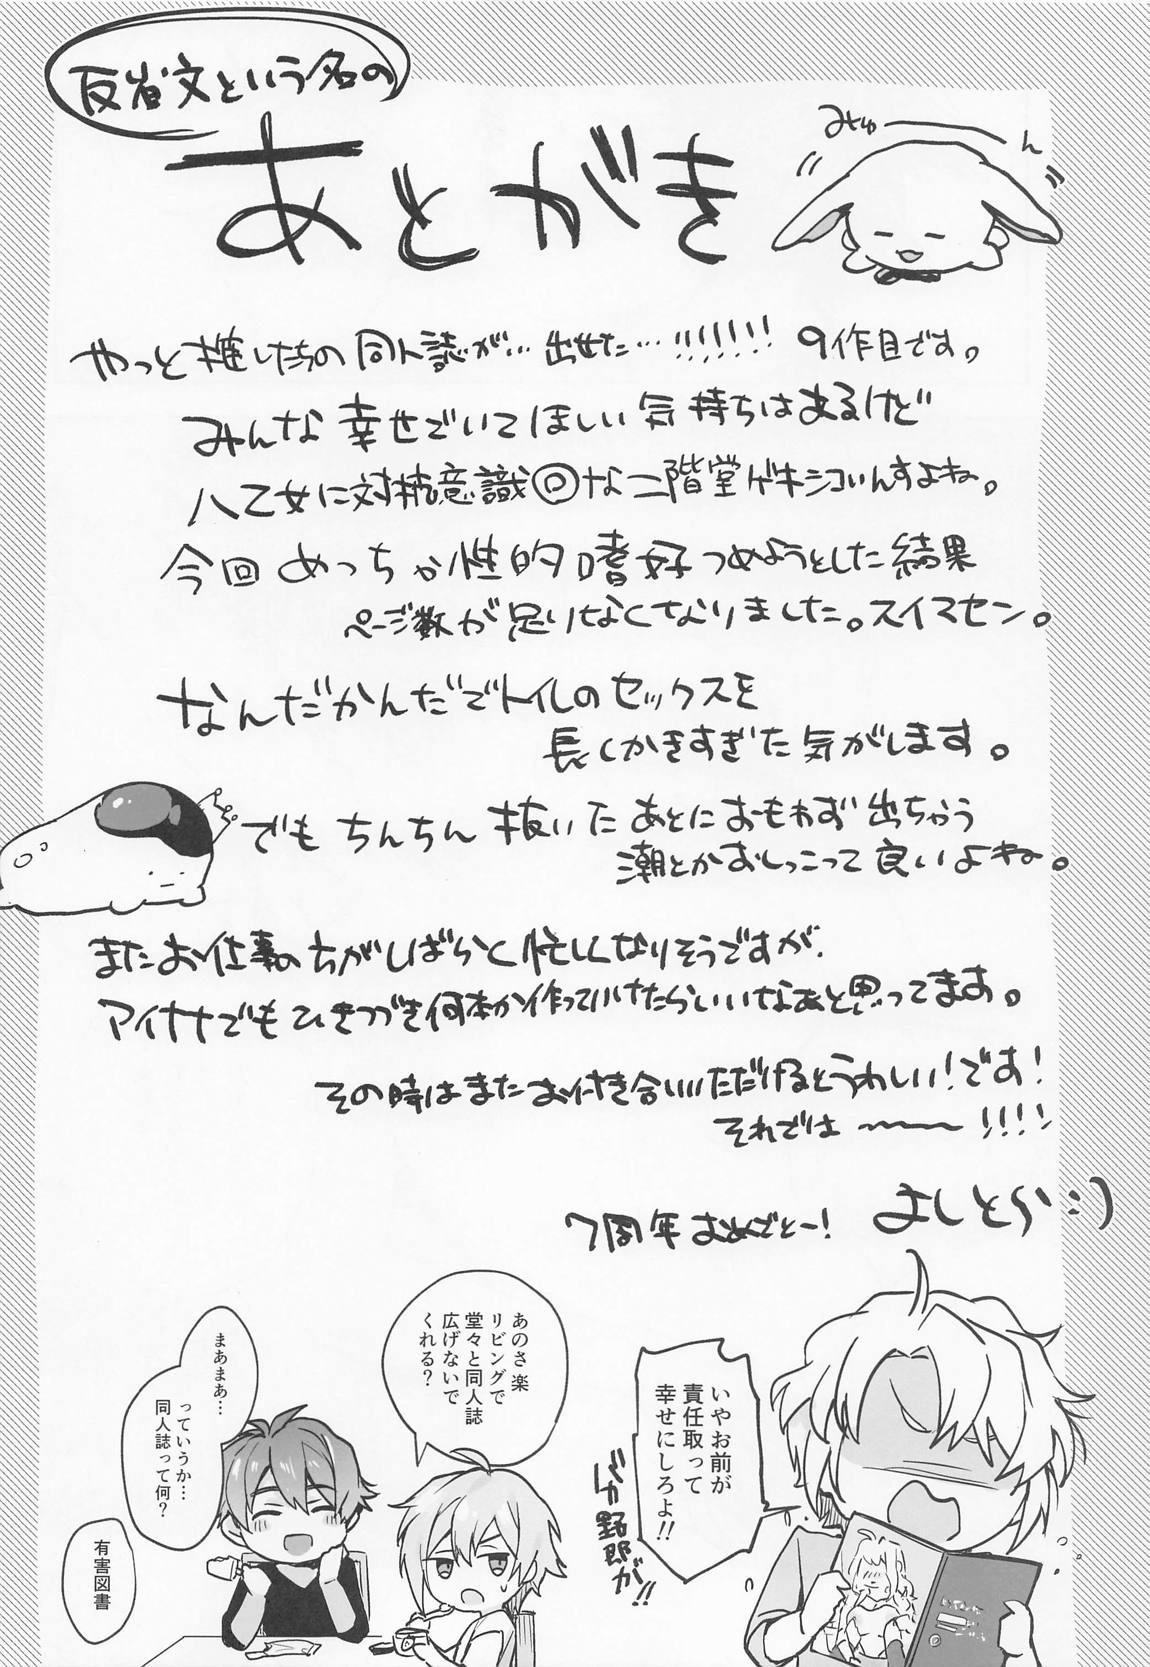 反省文という名の
あとがき
みゅーーーん
やっと推したちの同人誌が…出せた…!!!!!!! 9作目です。
みんな幸せでいてほしい気持ちはあるけど
八乙女に対抗意識◎な二階堂ゲキシコいんすよね。
今回めっちゃ性的嗜好つめようとした結果
ページ数が足りなくなりました。スイマセン。
なんだかんだでトイレのセックスを
長くかきすぎた気がします。
でもちんちん抜いたあとにおもわず出ちゃう
潮とかおしっこって良いよね。
またお仕事の方がしばらく忙しくなりそうですが、
アイナナでもひきつづき何本か作っていけたらいいなあと思ってます。
その時はまたお付き合いいただけるとうれしい!です!
それでは〜〜〜!!!!
7周年おめでとー!
よしとら:)
いやお前が
責任取って
幸せにしろよ!!
バカ野郎が!!
あのさ楽
リビングで
堂々と同人誌
広げないで
くれる?
まあまあ…
っていうか…
同人誌って何?
有害図書